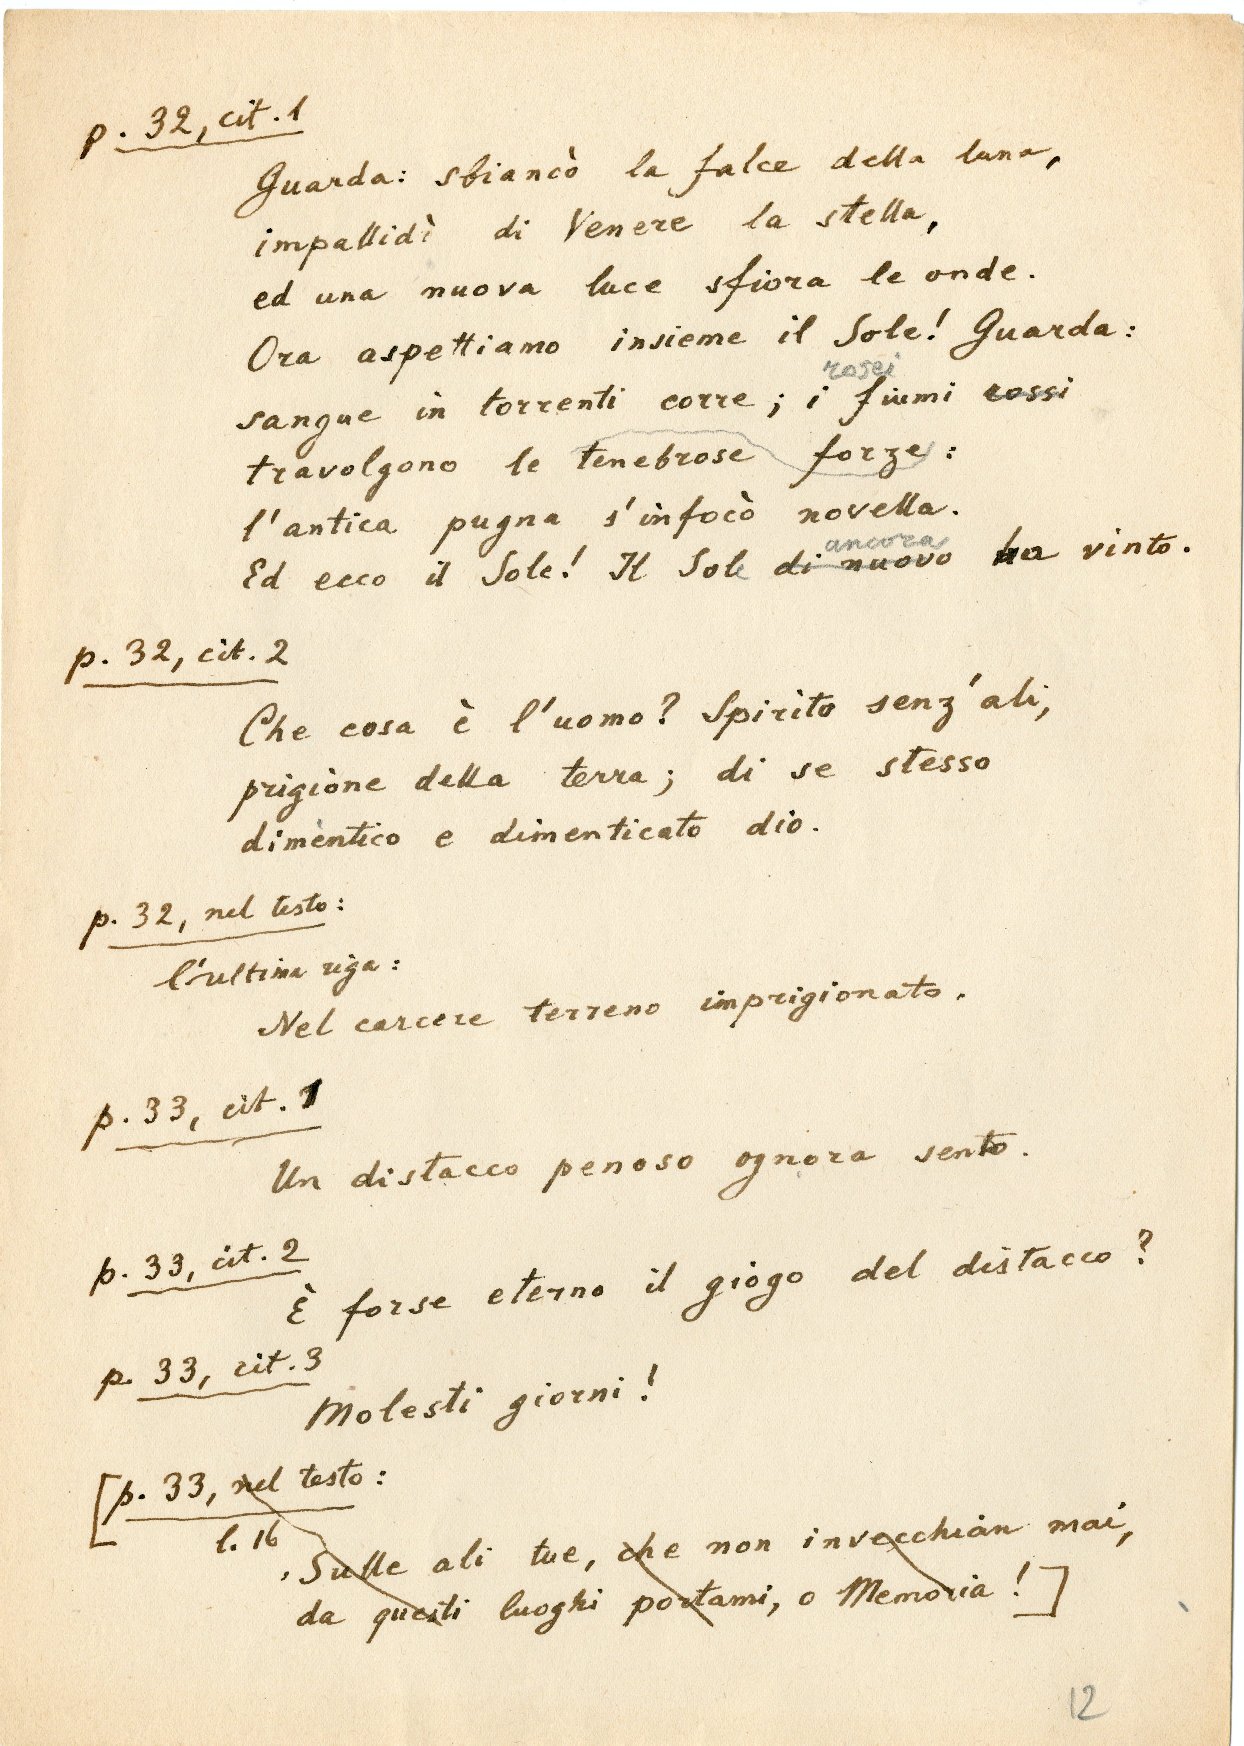 p. 32, cit. 1
Guarda: sbiancò la falce della luna,
impallidì di Venere la stella,
ed una nuova luce sfiora le onde.
Ora aspettiamo insieme il Sole! Guarda:
rosei
sangue in torrenti corre; i fiumi rossi
travolgono le tenebrose forze:
l'antica pugna s'infocò novella.
ancora
Ed ecco il Sole! Il Sole di nuovo ha vinto.
p. 32, cit. 2
Che cosa è l'uomo? Spirito senz'ali,
prigione della terra; di se stesso
dimèntico e dimenticato dio.
p. 32, nel testo:
l'ultima riga:
Nel carcere terreno imprigionato.
p. 33, cit. 1
Un distacco penoso ognora sento.
p. 33, cit. 2
È forse eterno il giogo del distacco?
p. 33, cit. 3
Molesti giorni!
[p. 33, nel testo:
l. 16
Sulle ali tue, che non invecchian mai,
da questi luoghi portami, o Memoria!]
12